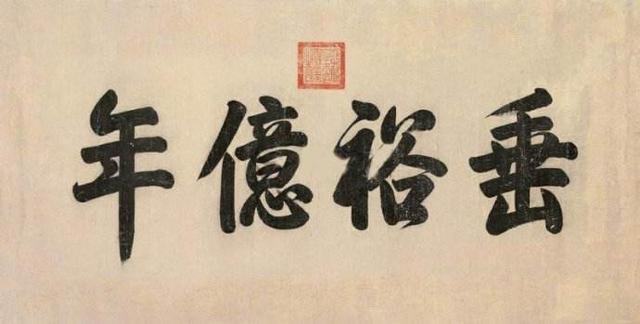 垂裕億年